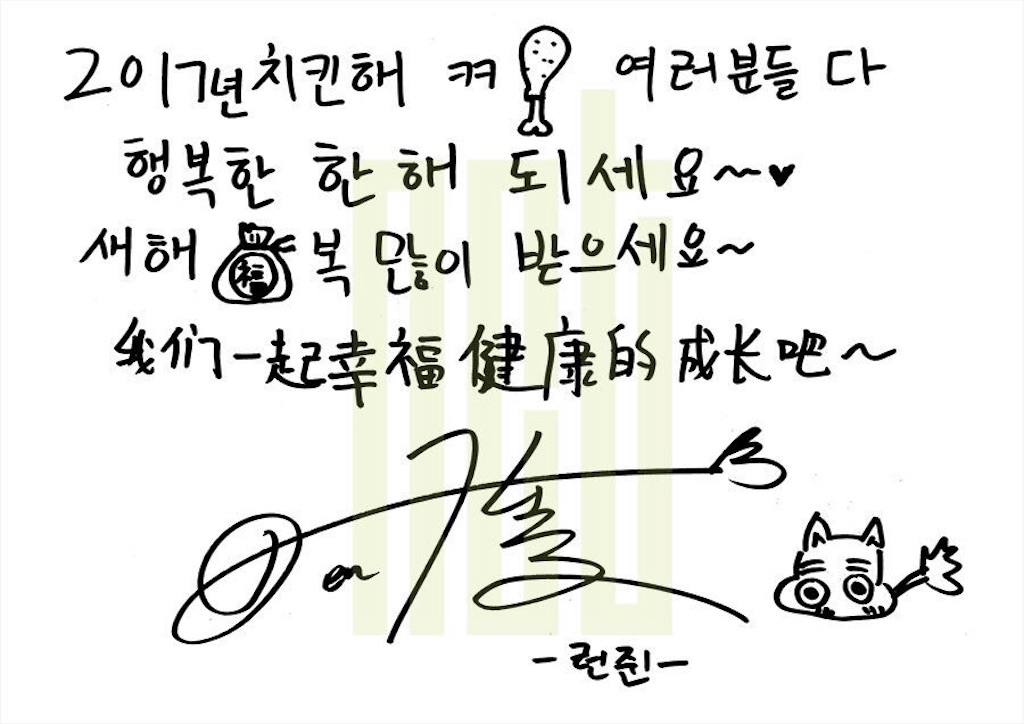 2017년 치킨해 ㅋㅋ 여러분들 다
행복한 한 해 되세요~♥
새해 福 복 많이 받으세요~
我们一起幸福健康的成长吧~
-런쥔-